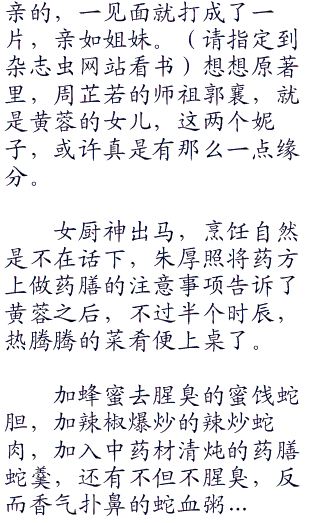 亲的，一见面就打成了一
片，亲如姐妹。（请指定到
杂志虫网站看书）想想原著
里，周芷若的师祖郭襄，就
是黄蓉的女儿，这两个妮
子，或许真是有那么一点缘
分。
女厨神出马，烹饪自然
是不在话下，朱厚照将药方
上做药膳的注意事项告诉了
黄蓉之后，不过半个时辰，
热腾腾的菜肴便上桌了。
加蜂蜜去腥臭的蜜饯蛇
胆，加辣椒爆炒的辣炒蛇
肉，加入中药材清炖的药膳
蛇羹，还有不但不腥臭，反
而香气扑鼻的蛇血粥...